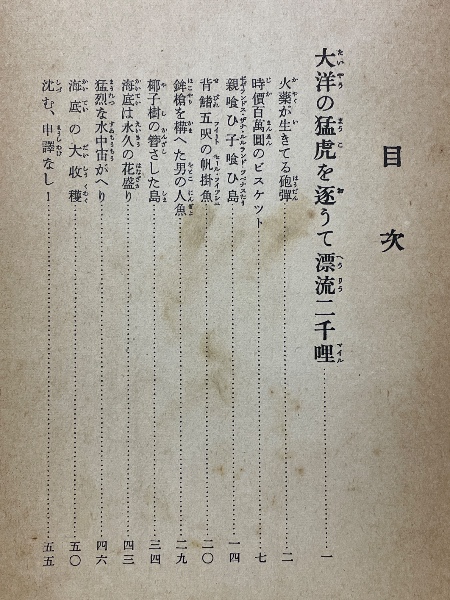 目次
大洋の猛虎を逐うて漂流二千哩……一
火藥が生きてる砲彈……二
時價百萬圓のビスケット……七
親喰ひ子喰ひ島……一四
背鰭五呎の帆掛魚……二〇
銛槍を構へた男の人魚……二九
椰子樹の簪さした島……三四
海底は永久の花盛り……四三
猛烈な水中宙がへり……四六
海底の大收穫……五〇
沈む、申譯なし!……五五